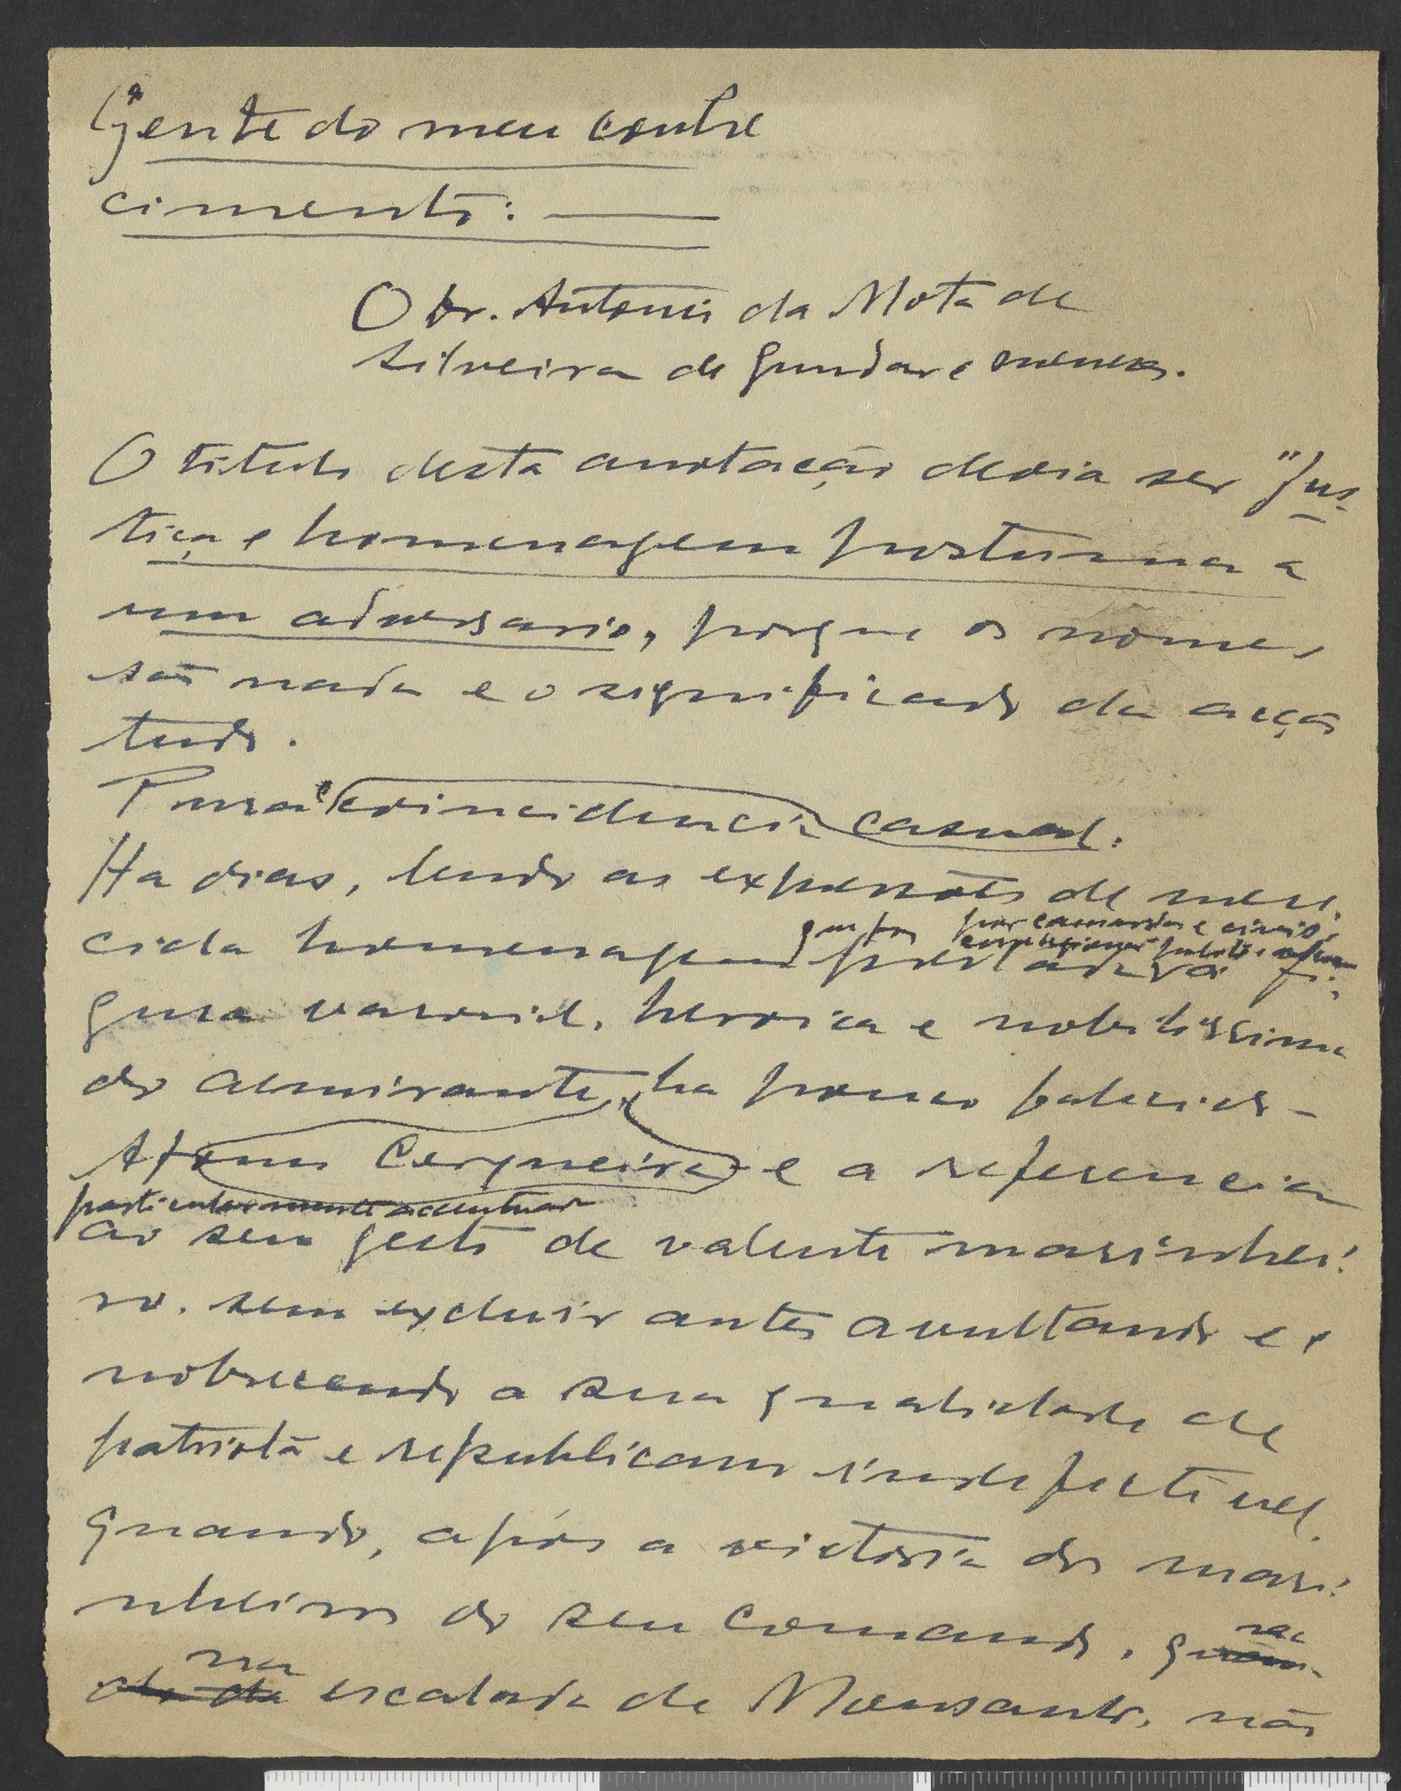 Gente do meu conhe
cimento: ——
O Dr. Antonio da Mota de
Silveira de Gundar e Meneses.
O titulo desta anotação devia ser "Jus-
tiça e homenagem postuma a
um adversario, porque os nomes
são nada e o significado da acção
tudo.
Pura coincidencia casual.
Ha dias, lendo as expressões de mere-
que foi por camaradas e
cida homenagem prestada á fi-
gura varonil, heroica e nobilissima
do almirante, ha pouco falecido -
Afonso Cerqueira - e a referencia
particularmente acentuada
ao seu gesto de valente marinhei-
ro, sem excluir antes avultando e e
nobrecendo a sua qualidade de
patriota e republicano indefectivel,
quando, após a victoria dos mari-
nheiros do seu comando,
na
na escalada de Monsanto, não